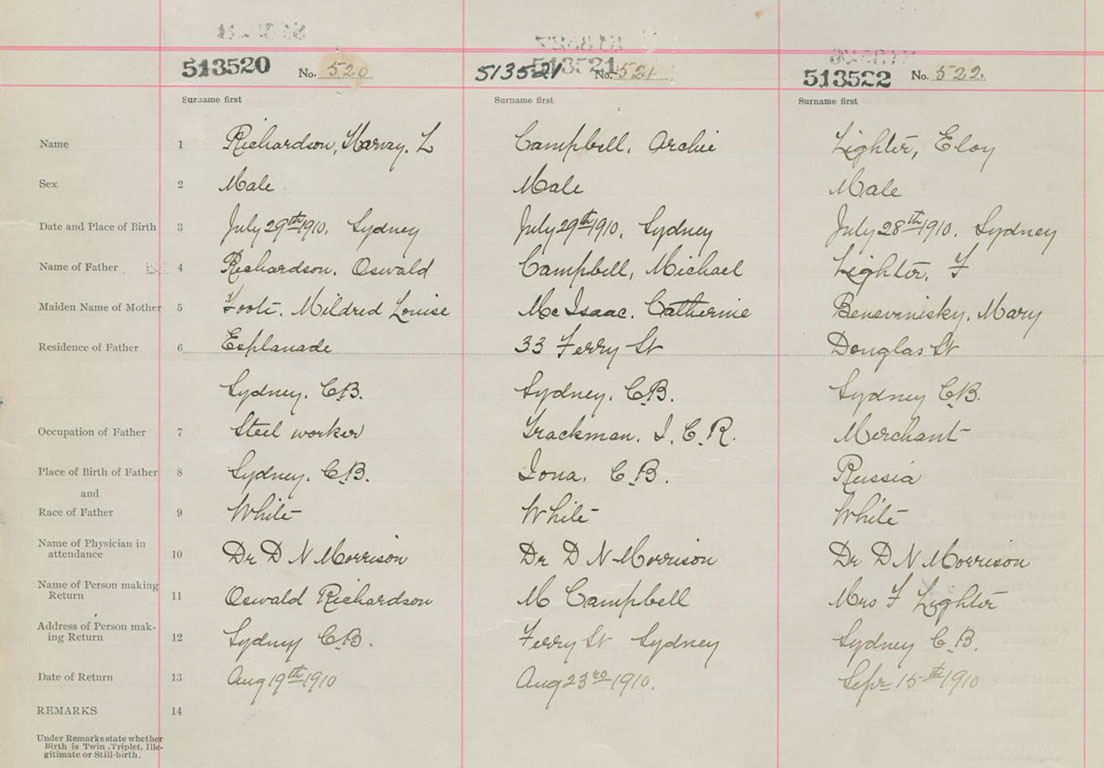 513520 No. 520 513521 513521 No. 521 513522 No. 522.
Surname first Surname first Surname first
Name 1 Richardson, Harvay. L Campbell, Archie Lighter, Eloy
Sex 2 Male Male Male
Date and Place of Birth 3 July 29th 1910. Sydney July 29th 1910. Sydney July 28th 1910. Sydney
Name of Father 4 Richardson. Oswald Campbell, Michael Lighter. F
Maiden Name of Mother 5 Foote. Mildred Louise McIsaac. Catherine Benevinisky. Mary
Residence of Father 6 Esplanade 33 Ferry St Douglas St
Sydney. C.B. Sydney. C.B. Sydney C.B.
Occupation of Father 7 Steel worker Trackman. I. C. R. Merchant
Place of Birth of Father 8 Sydney. C.B. Iona. C.B. Russia
and
Race of Father 9 White White White
Name of Physician in
attendance 10 Dr D N Morrison Dr D N Morrison Dr D N Morrison
Name of Person making
Return 11 Oswald Richardson M Campbell Mrs F Lighter
Address of Person mak-
ing Return 12 Sydney C.B. Ferry St Sydney Sydney C.B.
Date of Return 13 Aug 19th 1910 Aug 23rd 1910. Sept 15th 1910
REMARKS 14
Under Remarks state whether
Birth is Twin, Triplet, Ille-
gitimate or Still-birth.